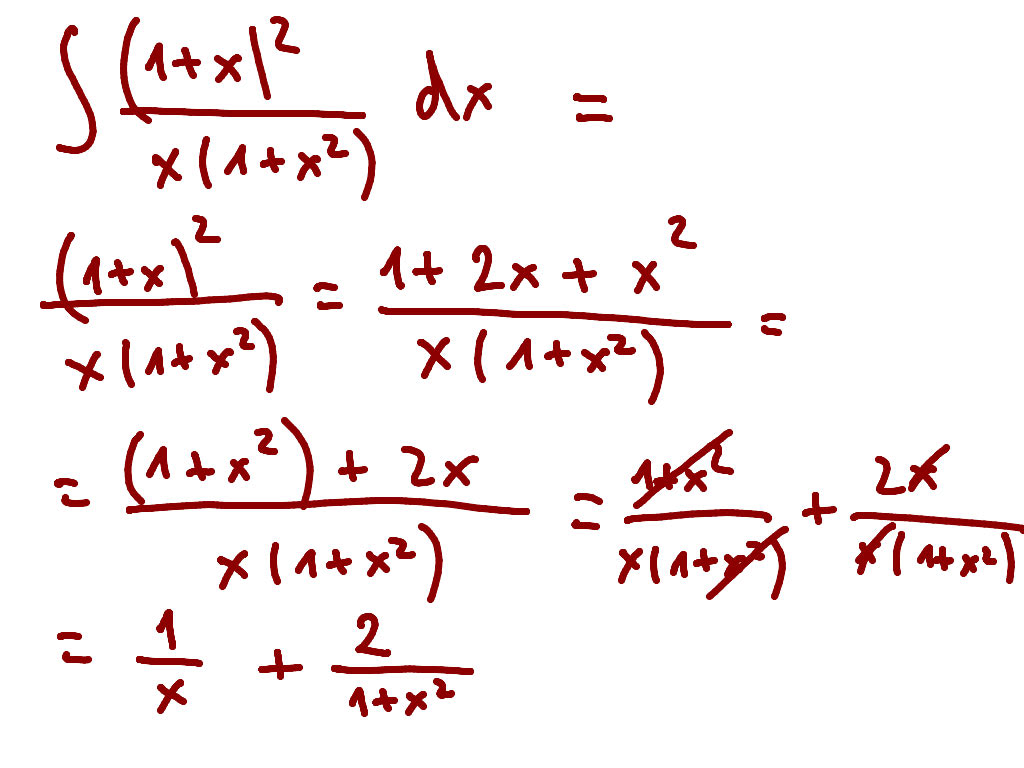 ∫ (1+x)² / x(1+x²) dx =
(1+x)² / x(1+x²) = 1+2x+x² / x(1+x²) =
= (1+x²)+2x / x(1+x²) = 1+x² / x(1+x²) + 2x / x(1+x²)
= 1/x + 2 / 1+x²